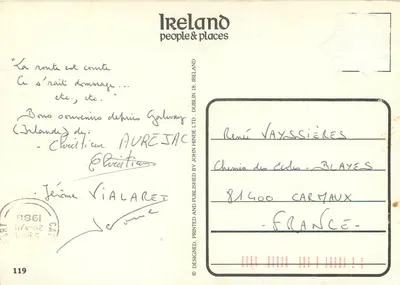 Ireland
people & places
"La route est courte
Ce s'rait dommage...
etc., etc."
Bons souvenirs depuis Galway
(Irlande) de:
- Christian AUREJAC
Christian
- Jérôme VIALARET
Jérôme
119
© DESIGNED, PRINTED AND PUBLISHED BY JOHN HINDE LTD., DUBLIN 18, IRELAND
René VAYSSIÈRES
Chemin des - BLAYES
81400 CARMAUX
- FRANCE -
1988